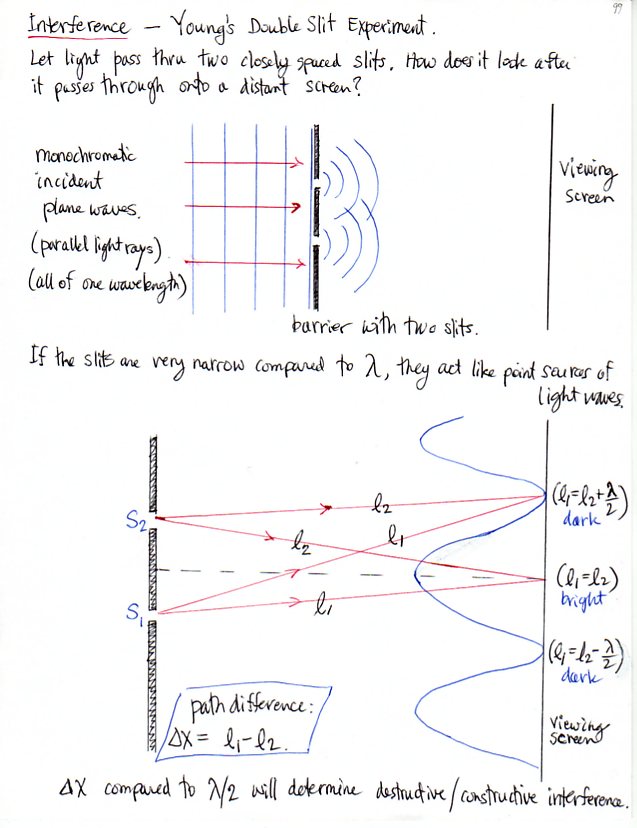 99
Interference — Young's Double Slit Experiment.
Let light pass thru two closely spaced slits. How does it look after
it passes through onto a distant screen?
monochromatic
incident
plane waves.
(parallel light rays)
(all of one wavelength)
viewing
screen
barrier with two slits.
If the slits are very narrow compared to λ, they act like point sources of
light waves.
S₂
S₁
l₂
l₂
l₁
l₁
(l₁=l₂+λ/2)
dark
(l₁=l₂)
bright
(l₁=l₂-λ/2)
dark
viewing
screen
path difference:
ΔX = l₁-l₂.
ΔX compared to λ/2 will determine destructive/constructive interference.